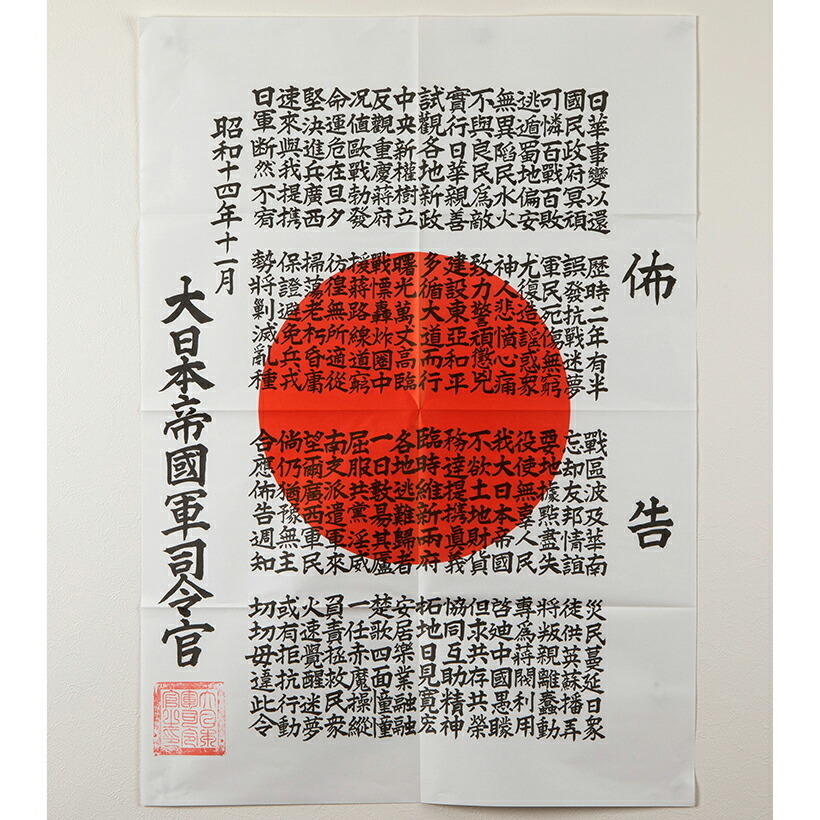 佈告
日華事變以還 歷時二年有半 戰區波及華南 災民蔓延日衆
國民政府冥頑 誤發抗戰迷夢 忘却友邦情誼 徒供英蘇播弄
可憐百戰百敗 軍民死傷無窮 要地據點盡失 將叛親離蠢動
逃遁蜀地偏安 尤復造謠惑衆 役使無辜人民 專爲蔣閥利用
無異陷民水火 神人悲憤心痛 我大日本帝國 啓迪中國愚矇
不與良民爲敵 致力警頑懲兇 不欲土地財貨 但求共存共榮
實行日華親善 建設東亞和平 務達提携眞義 協同互助精神
試觀各地新政 多循大道而行 臨時維新兩府 拓地日見寬宏
中央新權樹立 曙光萬丈高臨 各地逃難歸者 安居樂業融融
反觀重慶蔣府 戰慄轟炸圈中 一日數易其廬 楚歌四面憧憧
况值歐戰勃發 援蔣路線道窮 屈服共黨淫威 一任赤魔操縱
命運危在旦夕 彷徨無所適從 南支派遣軍來 負責極救民衆
堅決進兵廣西 掃蕩老朽昏庸 望爾廣西軍民 火速覺醒迷夢
速來與我提携 保證避免兵戎 倘仍猶豫無主 或有拒抗行動
日軍斷然不宥 勢將剿滅亂種 合應佈告週知 切切毋違此令
昭和十四年十一月
大日本帝國軍司令官